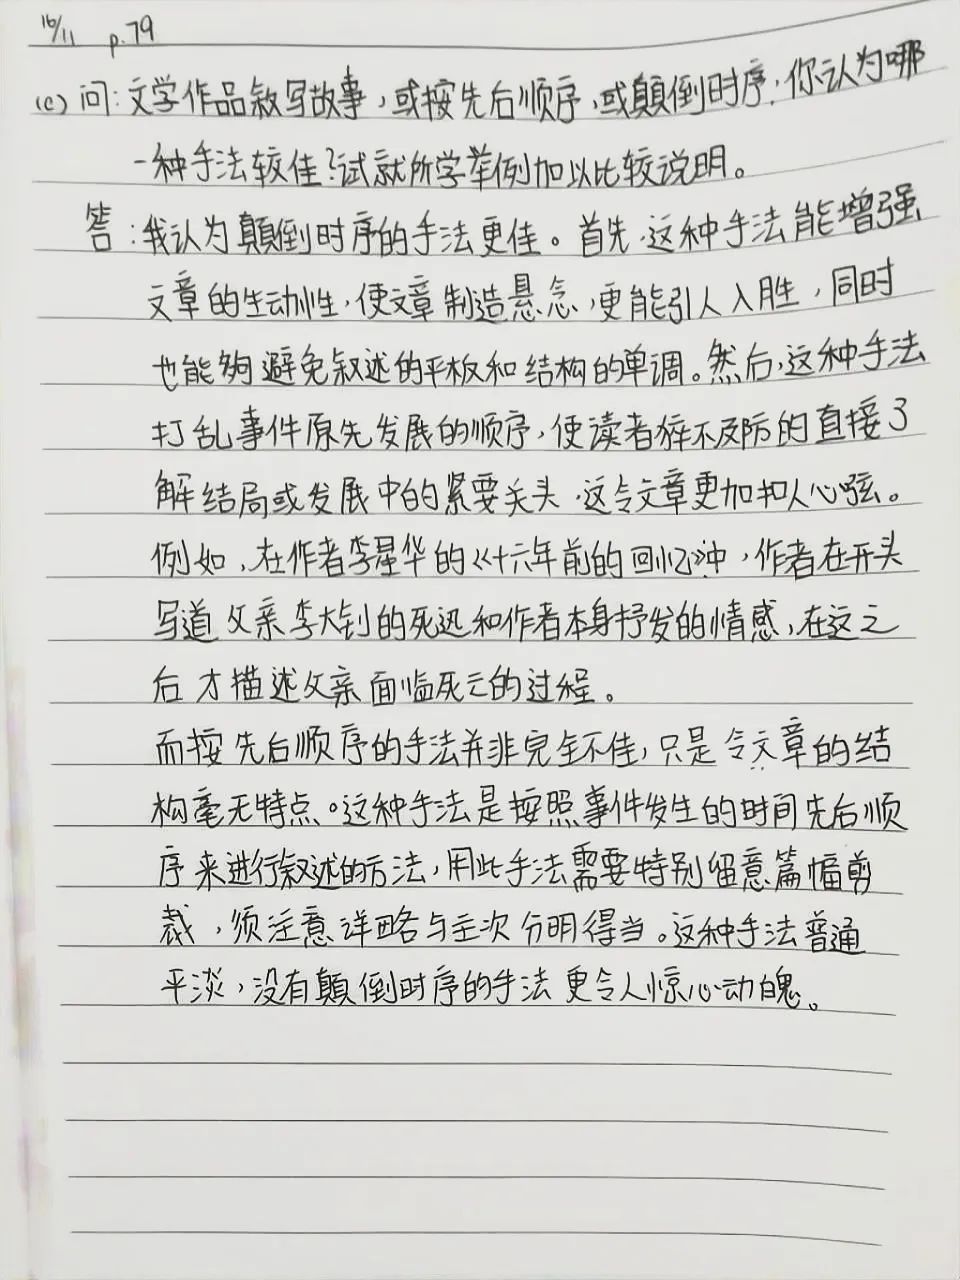 16/11 p.79
(c) 问：文学作品叙写故事，或按先后顺序，或顛倒时序；你认为哪
一种手法较佳？试就所学举例加以比较说明。
答：我认为顛倒时序的手法更佳。首先，这种手法能增强
文章的生动性，使文章制造悬念，更能引人入胜，同时
也能够避免叙述的平板和结构的单调。然后，这种手法
打乱事件原先发展的顺序，使读者猝不及防的直接了
解结局或发展中的紧要关头，这令文章更加扣人心弦。
例如，在作者李星华的《十六年前的回忆》中，作者在开头
写道父亲李大钊的死迅和作者本身抒发的情感，在这之
后才描述父亲面临死亡的过程。
而按先后顺序的手法并非完全不佳，只是令文章的结
构毫无特点。这种手法是按照事件发生的时间先后顺
序来进行叙述的方法，用此手法需要特别留意篇幅剪
裁，须注意详略与主次分明得当。这种手法普通
平淡，没有顛倒时序的手法更令人惊心动魄。